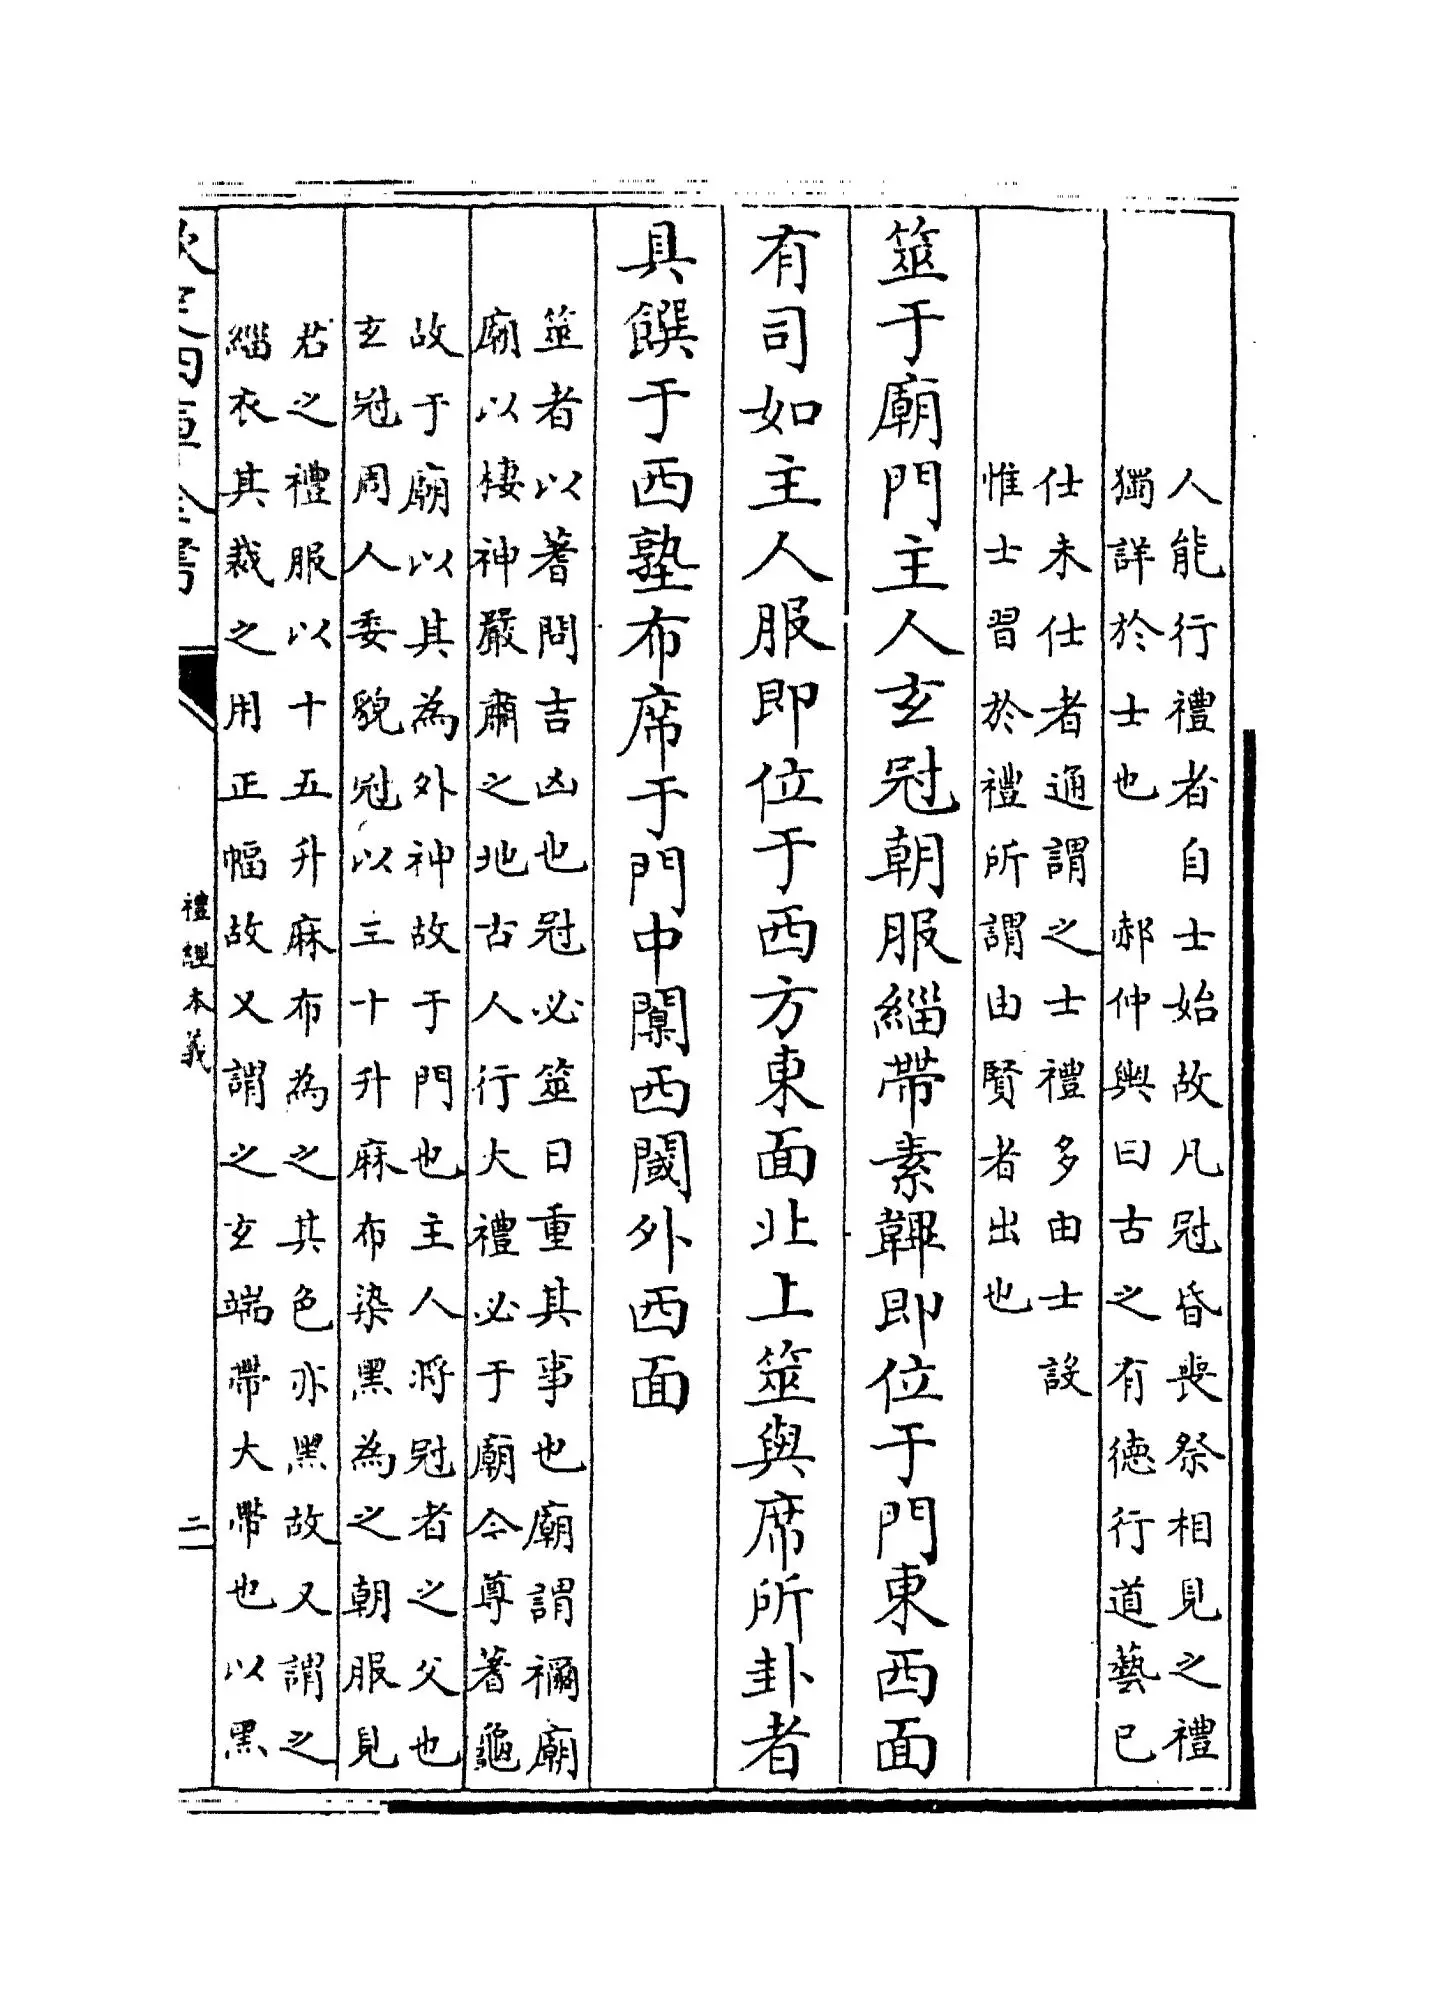 人能行禮者自士始故凡冠昏喪祭相見之禮
獨詳於士也　郝仲輿曰古之有德行道藝已
仕未仕者通謂之士禮多由士設
惟士習於禮所謂由賢者出也
筮于廟門主人玄冠朝服緇帶素韠即位于門東西面
有司如主人服即位于西方東面北上筮與席所卦者
具饌于西塾布席于門中闑西閾外西面
筮者以蓍問吉凶也冠必筮日重其事也廟謂禰廟
廟以棲神嚴肅之地古人行大禮必于廟今尊蓍龜
故于廟以其為外神故于門也主人將冠者之父也
玄冠周人委貌冠以三十升麻布染黑為之朝服見
君之禮服以十五升麻布為之其色亦黑故又謂之
緇衣其裁之用正幅故又謂之玄端帶大帶也以黑
欽定四庫全書
禮經本義
二